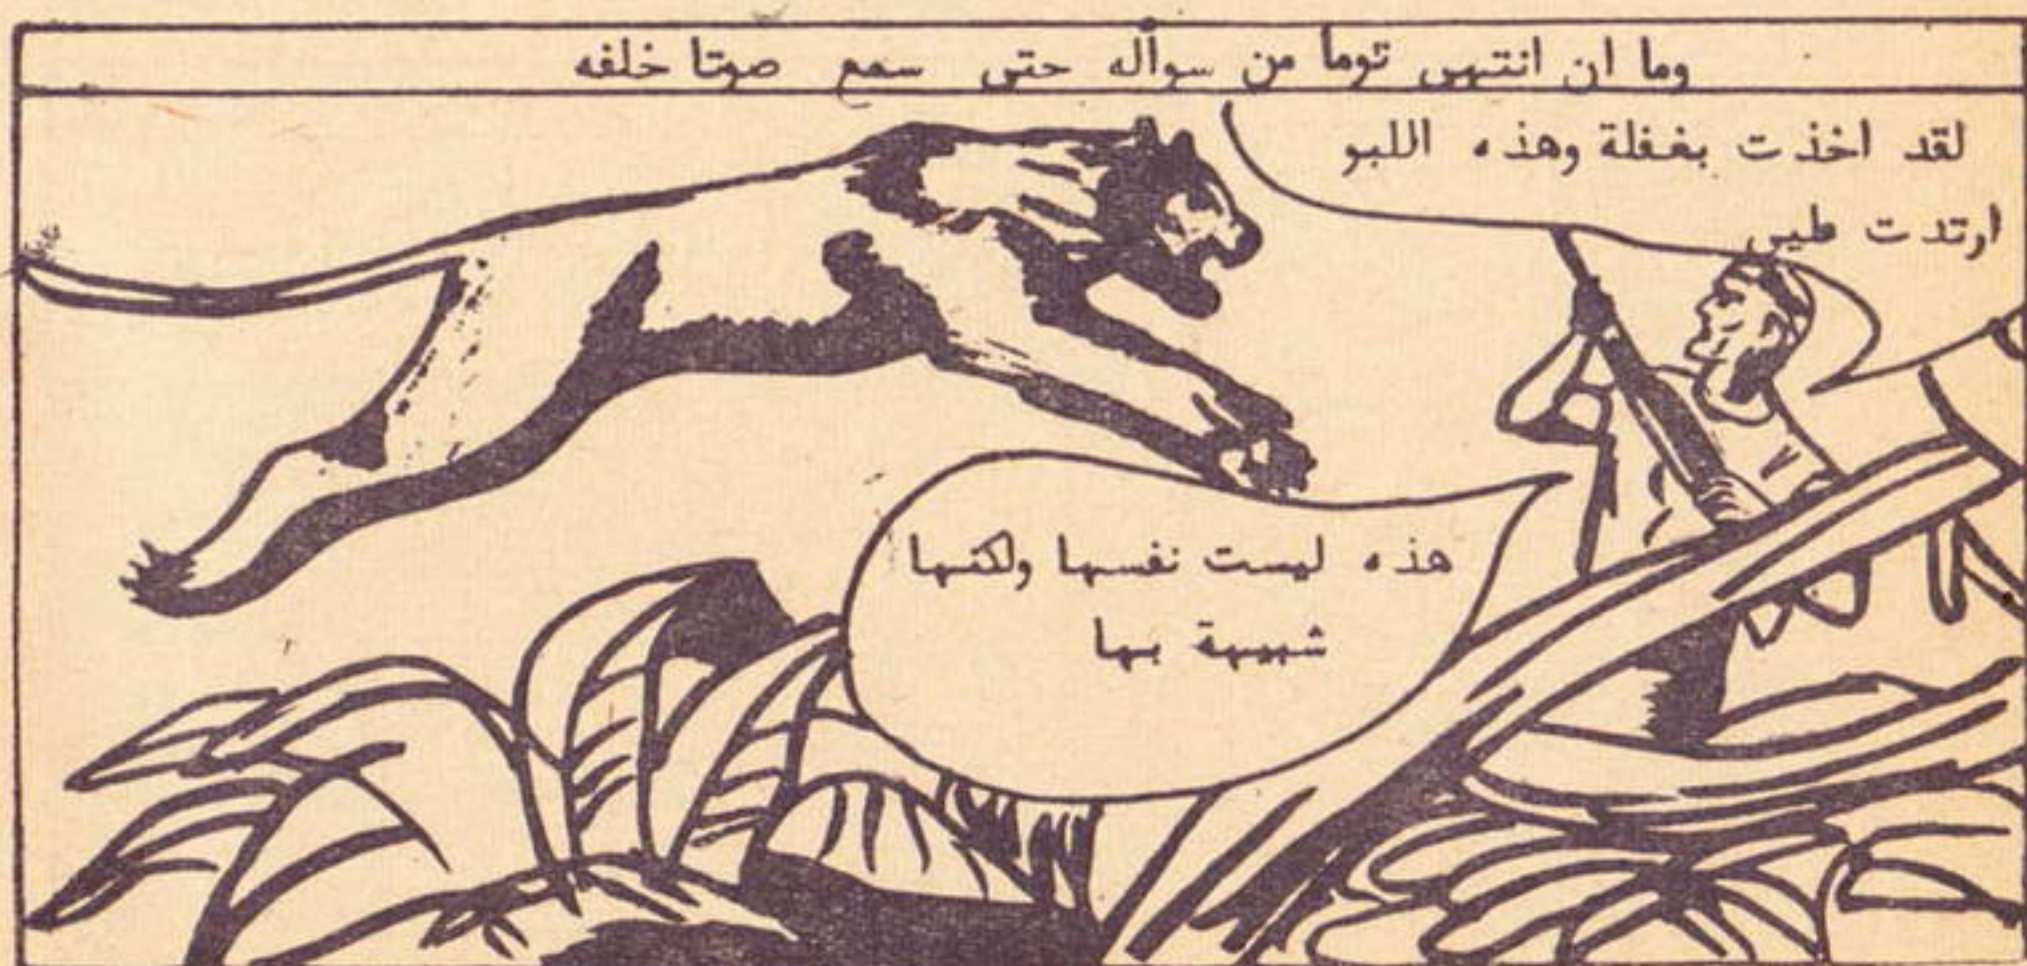 وما ان انتهى توما من سوأله حتى سمع صوتا خلفه
لقد اخذت بغفلة وهذه اللبو
ارتدت علي
هذه ليست نفسها ولكنها
شبيهة بها